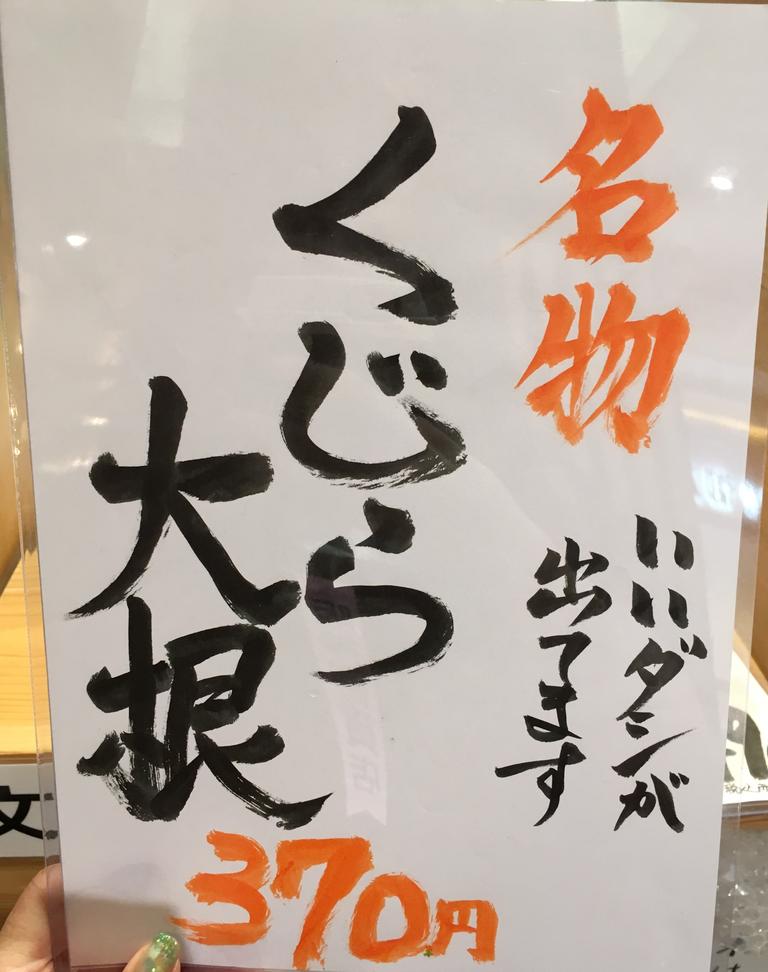 名物
くじら
大根
いいダシが
出てます
370円
文